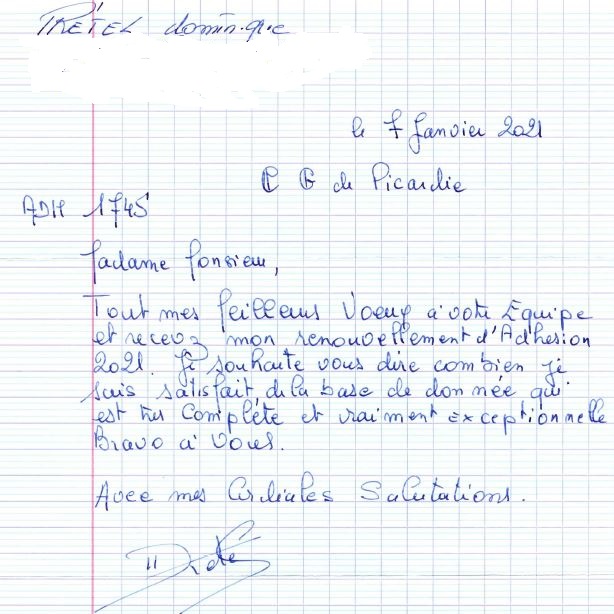 PRÉTEL dominique
le 7 Janvier 2021
C G de Picardie
ADH 1745
Madame Monsieur,
Tout mes Meilleurs Voeux a votre Equipe
et recevez mon renouvellement d'Adhesion
2021. Je souhaite vous dire combien je
suis satisfait de la base de donnée qui
est tres Complète et vraiment exceptionnelle
Bravo a Vous.
Avec mes Cordiales Salutations.